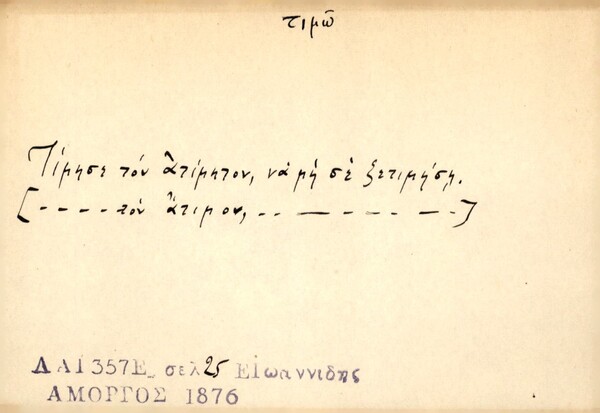 τιμῶ
Τίμησε τόν ἀτίμητον, νά μή σέ ξετιμήσῃ.
[---- τόν ἄτιμον, -- — — — - —]
ΔΑΙ 357Ε_ σελ 25 ΕΙωαννιδης
ΑΜΟΡΓΟΣ 1876